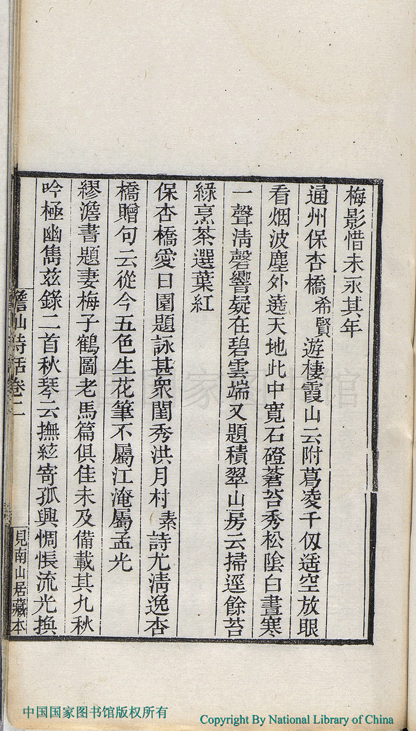 梅影惜未永其年
通州保杏橋希賢遊棲霞山云附葛凌千仞逕空放眼
看烟波塵外遶天地此中寬石磴蒼苔秀松陰白晝寒
一聲清磬響疑在碧雲端又題積翠山房云掃逕餘苔
綠烹茶選葉紅
保杏橋愛日園題詠甚衆閨秀洪月村素詩尤清逸杏
橋贈句云從今五色生花筆不屬江淹屬孟光
繆澹書題妻梅子鶴圖老馬篇俱佳未及備載其九秋
吟極幽雋兹錄二首秋琴云撫絃寄孤興惆悵流光換
詩話卷二
見南山居藏本
中国国家图书馆版权所有
Copyright By National Library of China